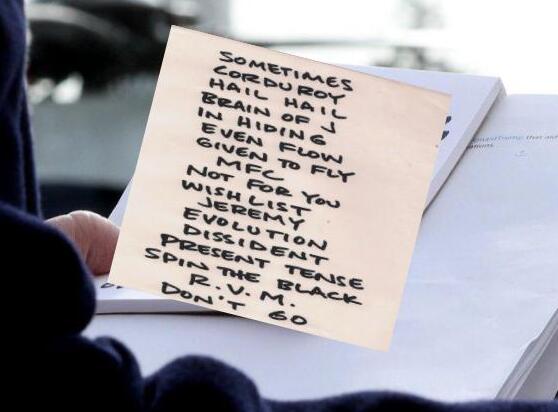 SOMETIMES
CORDUROY
HAIL HAIL
BRAIN OF J
IN HIDING
EVEN FLOW
GIVEN TO FLY
MFC
NOT FOR YOU
WISHLIST
JEREMY
EVOLUTION
DISSIDENT
PRESENT TENSE
SPIN THE BLACK
R.V.M.
DON'T GO